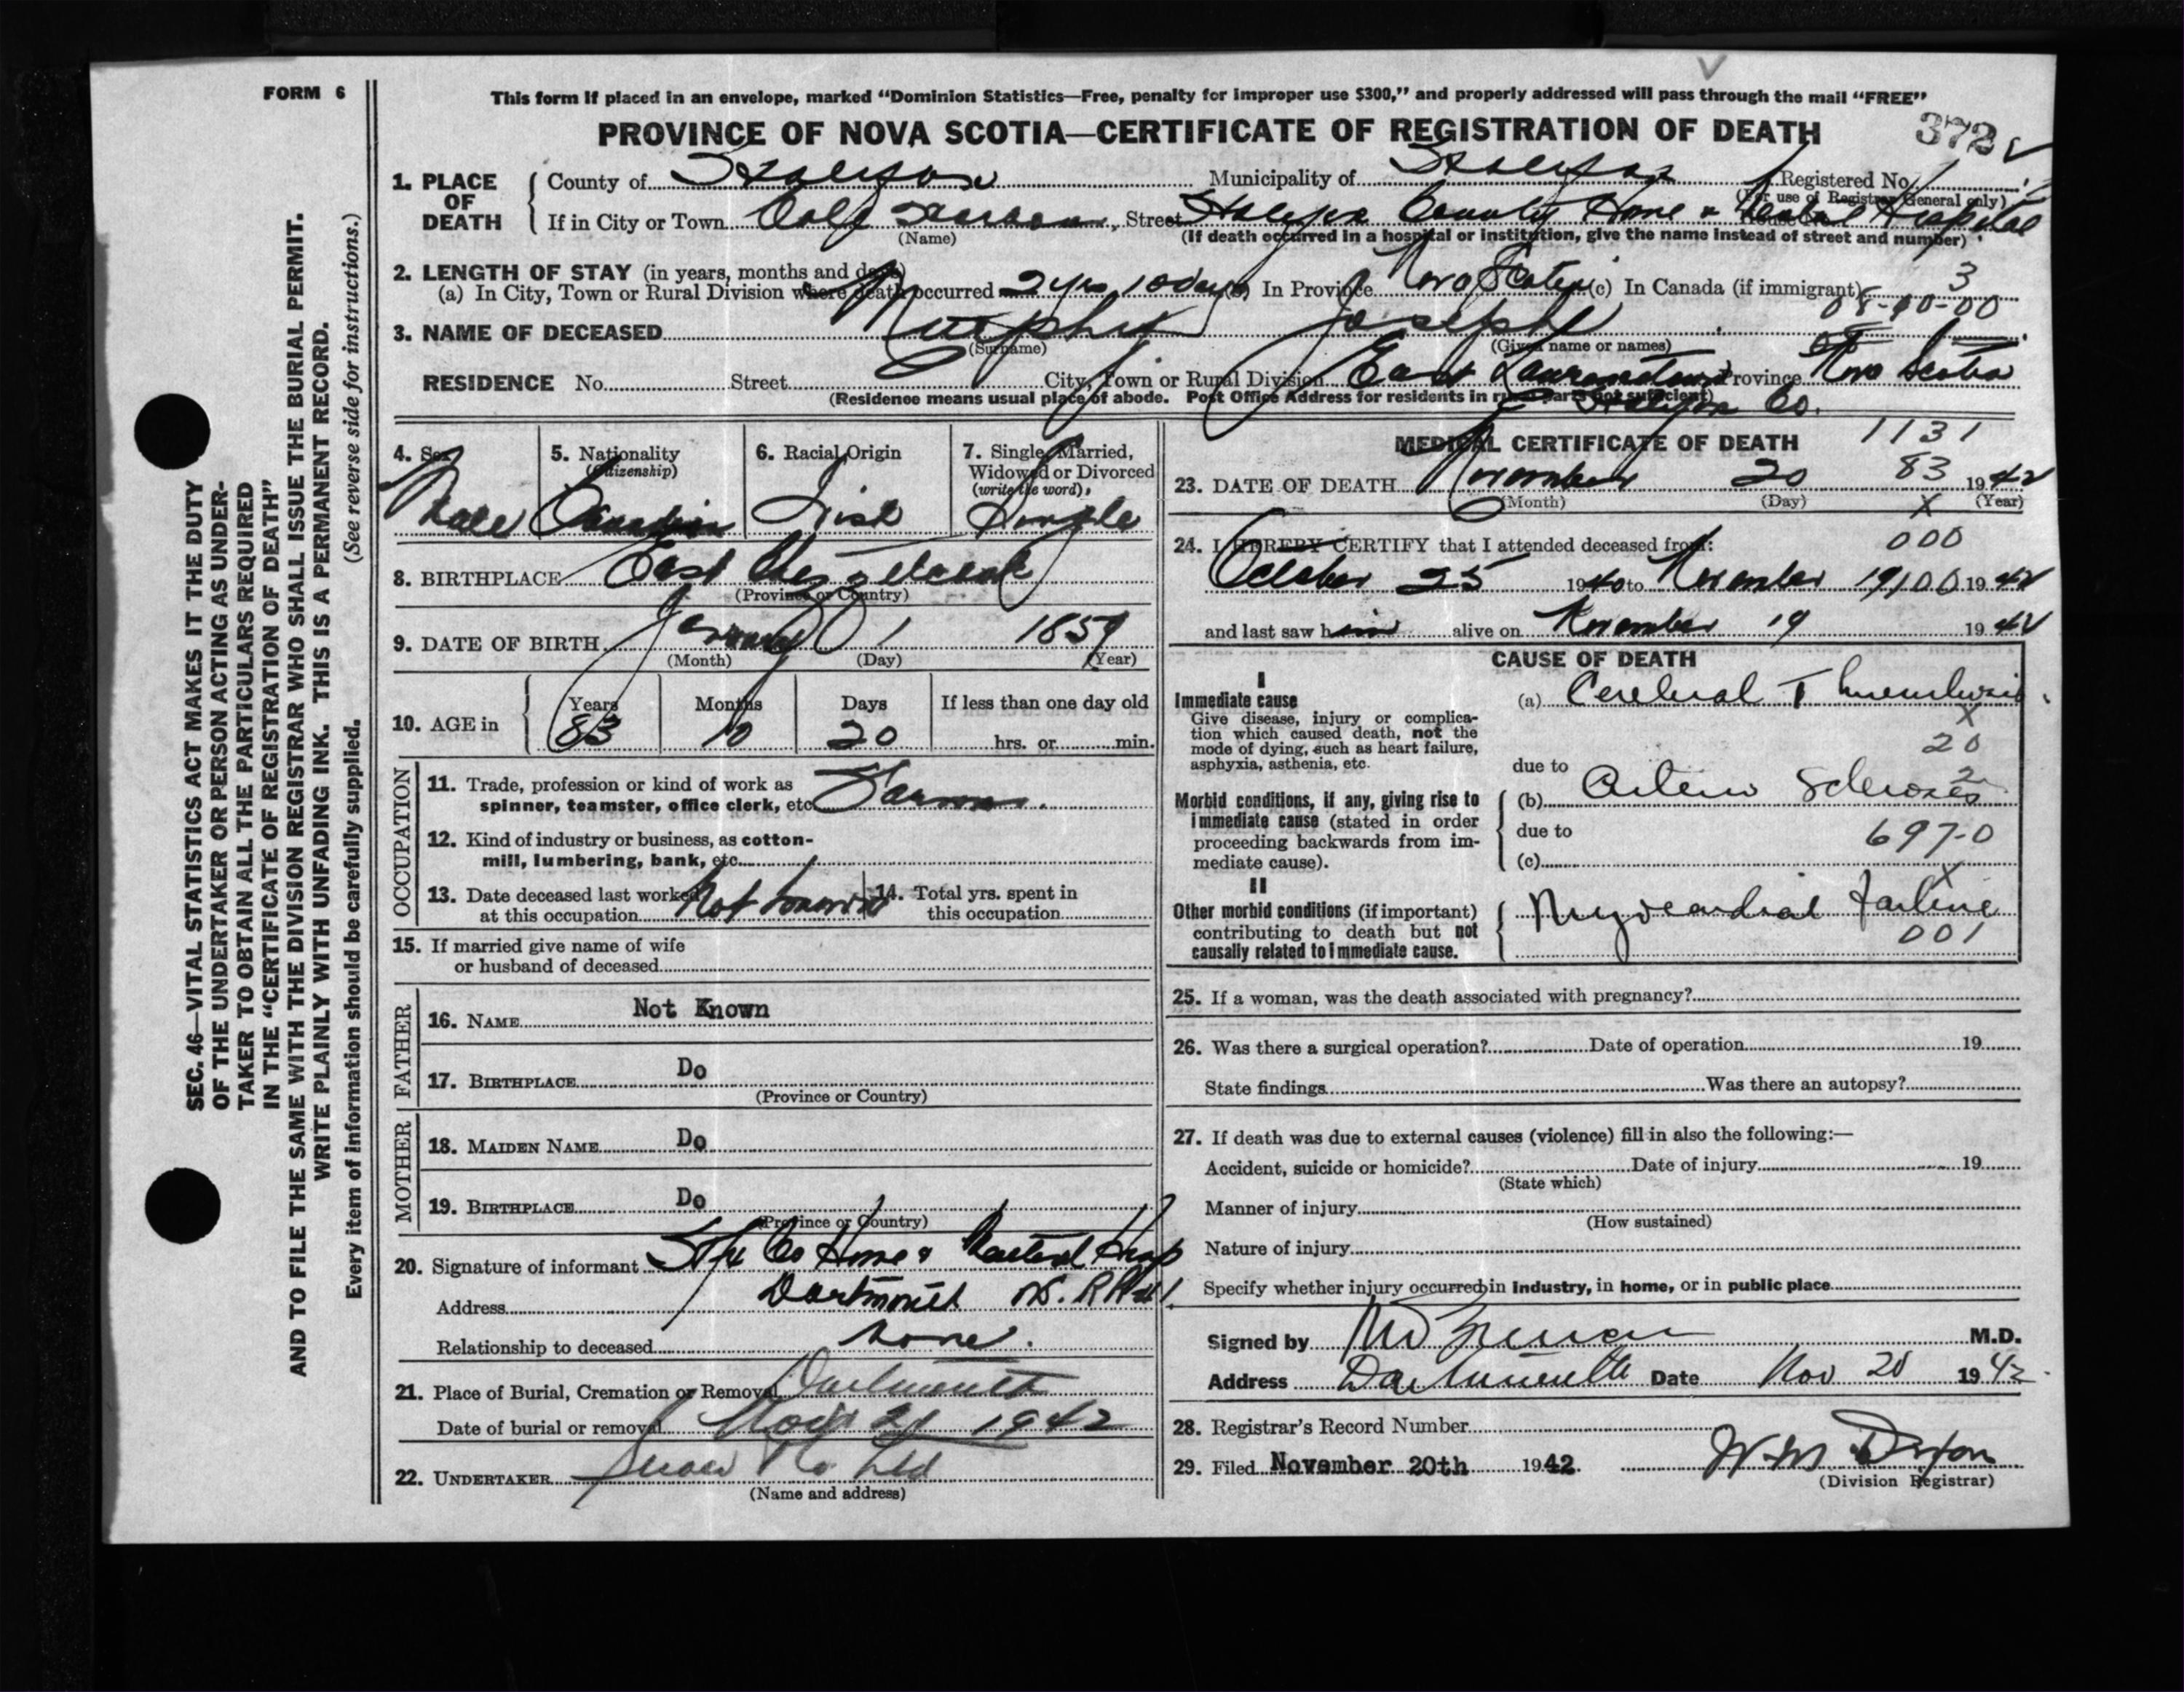 FORM 6
This form if placed in an envelope, marked “Dominion Statistics—Free, penalty for improper use $300,” and properly addressed will pass through the mail “FREE”
PROVINCE OF NOVA SCOTIA—CERTIFICATE OF REGISTRATION OF DEATH
372
1. PLACE OF DEATH
County of Halifax Municipality of Halifax Registered No.
(For use of Registrar General only)
If in City or Town Cole Harbour, Street Halifax County Home & Mental Hospital
(Name) (If death occurred in a hospital or institution, give the name instead of street and number)
2. LENGTH OF STAY (in years, months and days)
(a) In City, Town or Rural Division where death occurred 2 yrs 10 days (b) In Province Nova Scotia (c) In Canada (if immigrant) 3
08-10-00
3. NAME OF DECEASED Murphy Joseph
(Surname) (Given name or names)
RESIDENCE No. Street City, Town or Rural Division East Lawrencetown Province Nova Scotia
(Residence means usual place of abode. Post Office Address for residents in rural parts not sufficient) Halifax Co.
4. Sex 5. Nationality (Citizenship) 6. Racial Origin 7. Single, Married, Widowed or Divorced (write the word)
Male Canadian Irish Single
8. BIRTHPLACE East Chezzetcook
(Province or Country)
9. DATE OF BIRTH January 1 1859
(Month) (Day) (Year)
10. AGE in Years Months Days If less than one day old
83 10 20 hrs. or min.
OCCUPATION
11. Trade, profession or kind of work as
spinner, teamster, office clerk, etc. Farmer.
12. Kind of industry or business, as cotton-
mill, lumbering, bank, etc.
13. Date deceased last worked
at this occupation Not known
14. Total yrs. spent in
this occupation
15. If married give name of wife
or husband of deceased
FATHER
16. NAME Not Known
17. BIRTHPLACE Do
(Province or Country)
MOTHER
18. MAIDEN NAME Do
19. BIRTHPLACE Do
(Province or Country)
20. Signature of informant Hfx Co Home & Mental Hosp
Address Dartmouth N.S. RR #1.
Relationship to deceased none.
21. Place of Burial, Cremation or Removal Dartmouth
Date of burial or removal Nov 21 1942
22. UNDERTAKER Snow & Co Ltd
(Name and address)
MEDICAL CERTIFICATE OF DEATH 1131
83
23. DATE OF DEATH November 20 1942
(Month) (Day) (Year)
X
24. I HEREBY CERTIFY that I attended deceased from:
000
October 25 1940 to November 19 100 1942
and last saw him alive on November 19 1942
CAUSE OF DEATH
I
Immediate cause
Give disease, injury or complica-
tion which caused death, not the
mode of dying, such as heart failure,
asphyxia, asthenia, etc.
(a) Cerebral Thrombosis
X
20
due to
2
Morbid conditions, if any, giving rise to
immediate cause (stated in order
proceeding backwards from im-
mediate cause).
(b) Arterio Scleroses
due to
697-0
(c)
X
II
Other morbid conditions (if important)
contributing to death but not
causally related to immediate cause.
Myocardial failure
001
25. If a woman, was the death associated with pregnancy?
26. Was there a surgical operation? Date of operation 19
State findings Was there an autopsy?
27. If death was due to external causes (violence) fill in also the following:—
Accident, suicide or homicide? Date of injury 19
(State which)
Manner of injury
(How sustained)
Nature of injury
Specify whether injury occurred in industry, in home, or in public place
Signed by M.D.
Address Dartmouth Date Nov 20 1942
28. Registrar’s Record Number
29. Filed November 20th 1942. W M Dixon
(Division Registrar)
SEC. 46—VITAL STATISTICS ACT MAKES IT THE DUTY
OF THE UNDERTAKER OR PERSON ACTING AS UNDER-
TAKER TO OBTAIN ALL THE PARTICULARS REQUIRED
IN THE “CERTIFICATE OF REGISTRATION OF DEATH”
AND TO FILE THE SAME WITH THE DIVISION REGISTRAR WHO SHALL ISSUE THE BURIAL PERMIT.
WRITE PLAINLY WITH UNFADING INK. THIS IS A PERMANENT RECORD.
Every item of information should be carefully supplied. (See reverse side for instructions.)